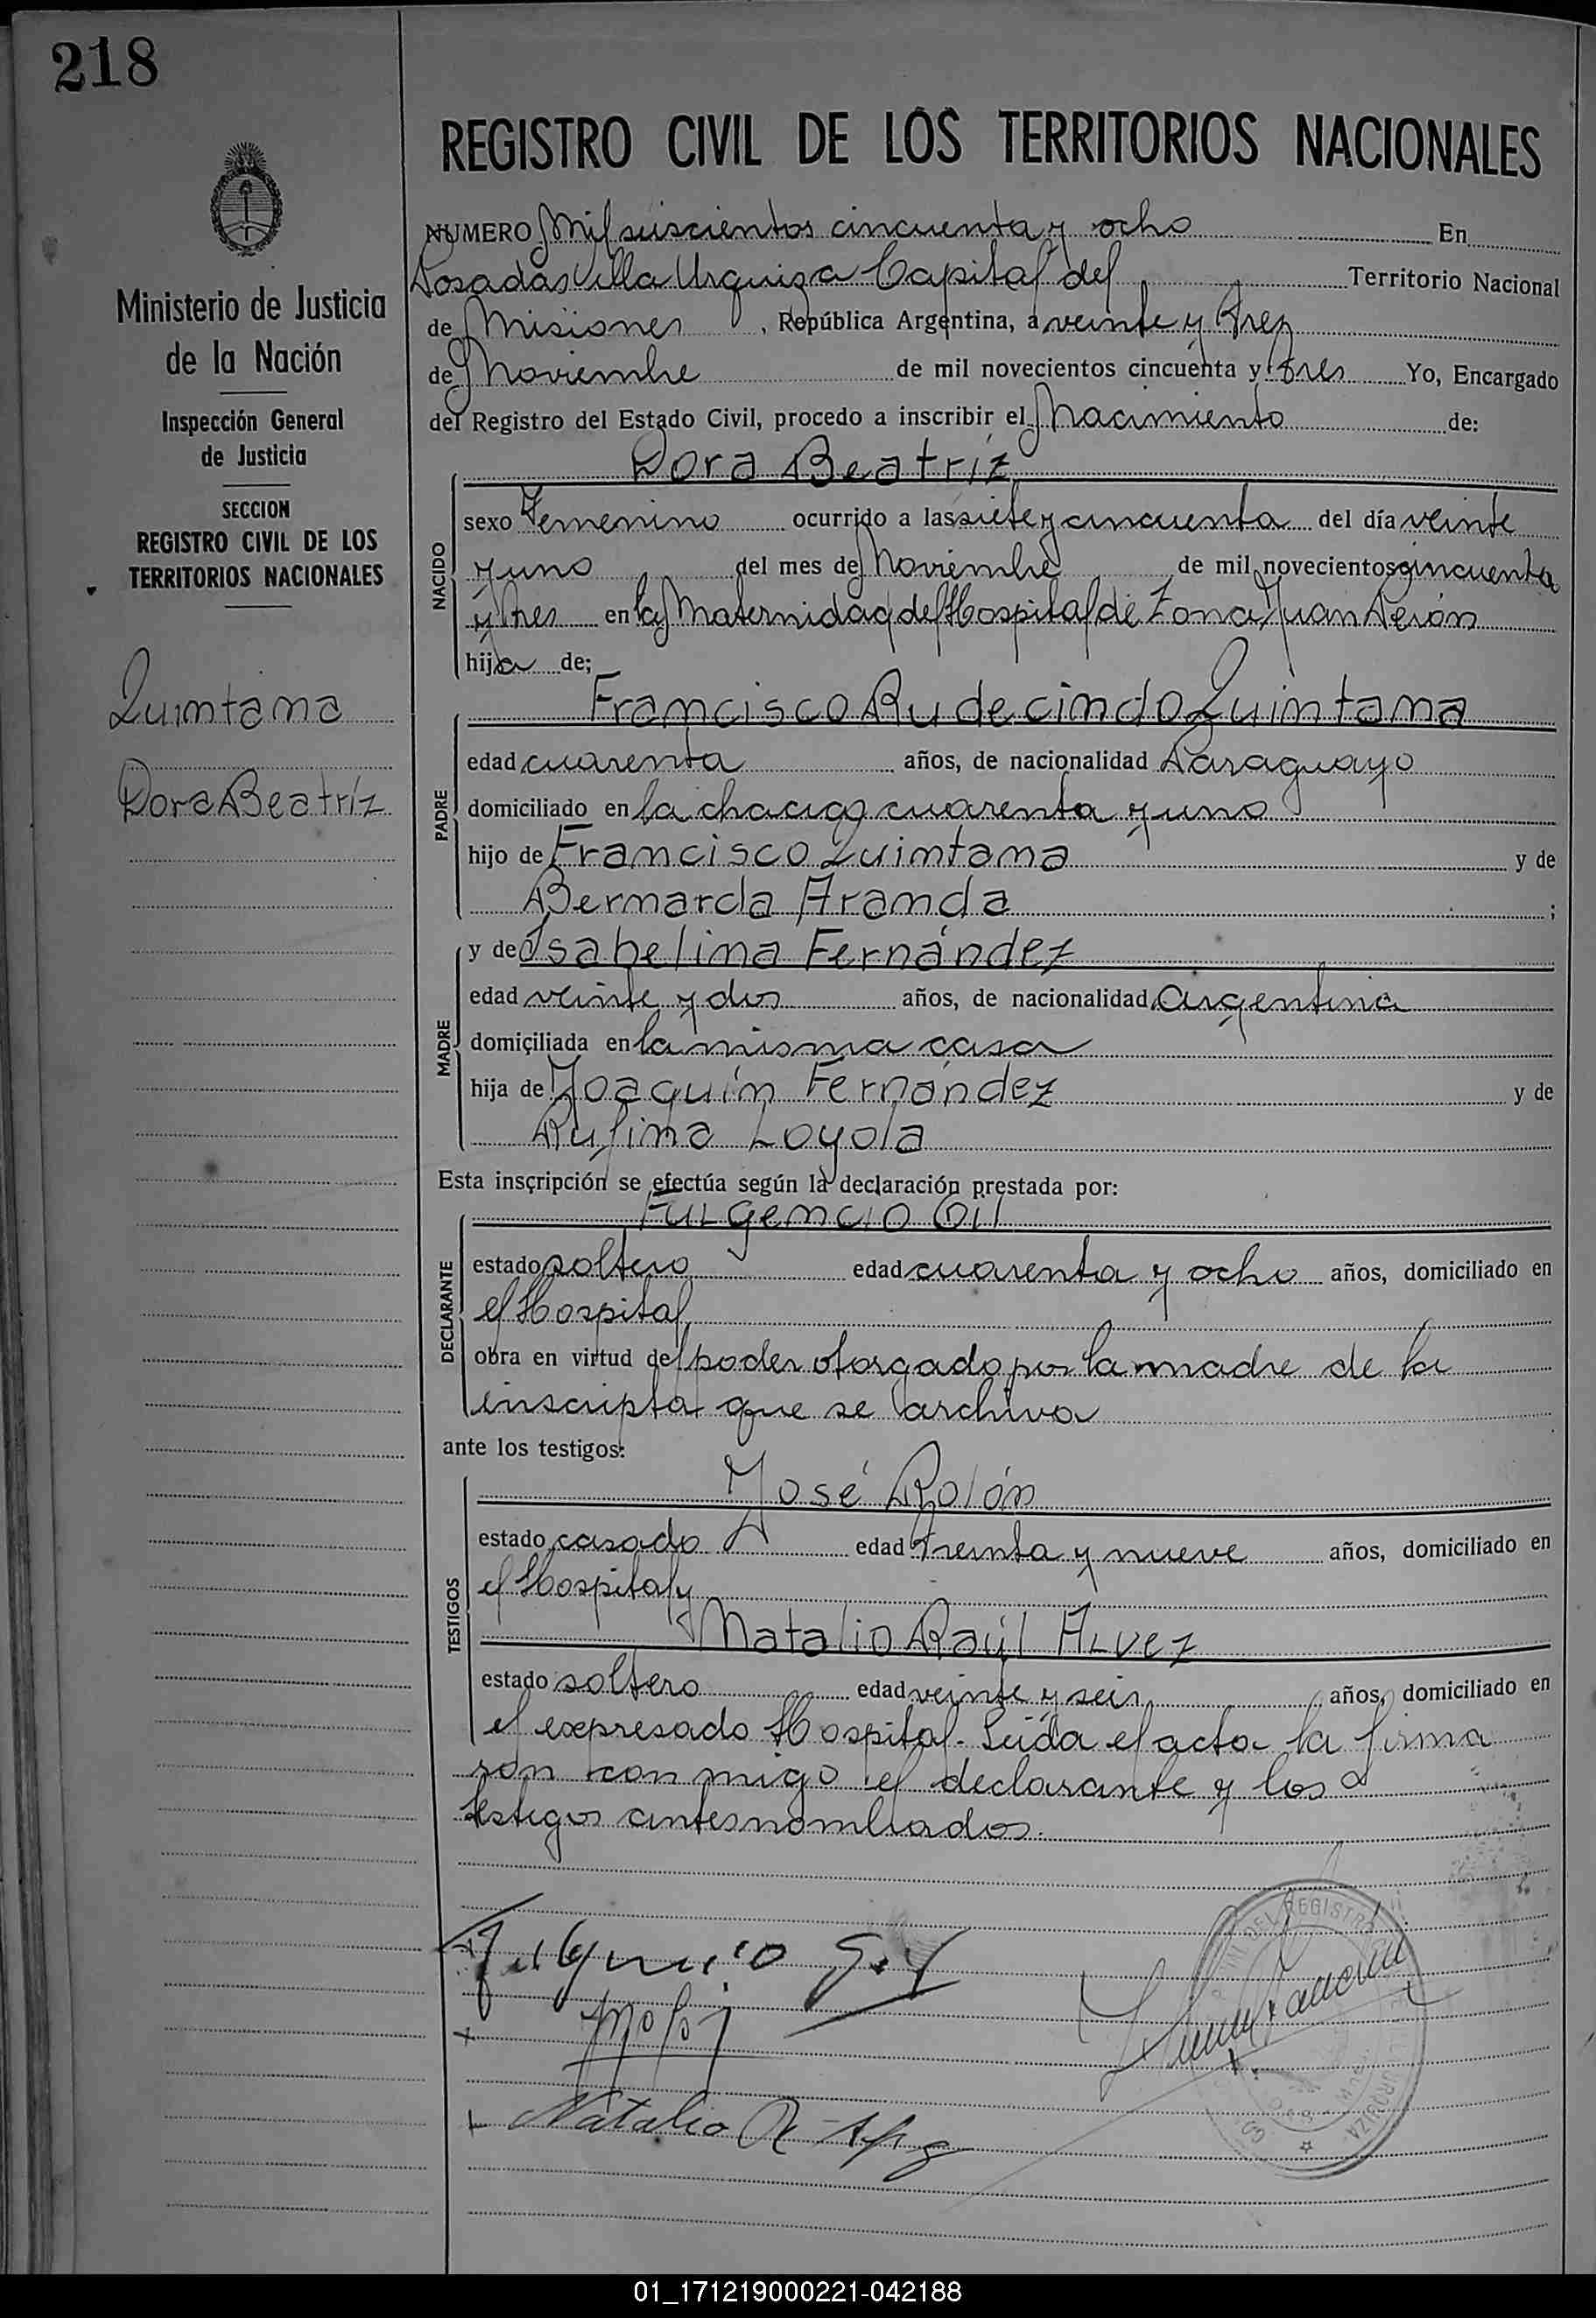 218
REGISTRO CIVIL DE LOS TERRITORIOS NACIONALES
Ministerio de Justicia
de la Nación
Inspección General
de Justicia
SECCION
REGISTRO CIVIL DE LOS
TERRITORIOS NACIONALES
Quintana
Dora Beatríz
NUMERO Mil seiscientos cincuenta y ocho En
Posadas Villa Urquiza Capital del Territorio Nacional
de Misiones, República Argentina, a veinte y trez
de Noviembre de mil novecientos cincuenta y tres Yo, Encargado
del Registro del Estado Civil, procedo a inscribir el Nacimiento de:
Dora Beatríz
NACIDO
sexo Femenino ocurrido a las siete y cincuenta del día veinte
y uno del mes de Noviembre de mil novecientos cincuenta
y tres en la Maternidad del Hospital de Zona Juan Perón
hija de;
Francisco Rudecindo Quintana
PADRE
edad cuarenta años, de nacionalidad Paraguayo
domiciliado en la chacra cuarenta y uno
hijo de Francisco Quintana y de
Bernarda Aranda ;
y de Isabelina Fernández
MADRE
edad veinte y dos años, de nacionalidad Argentina
domiciliada en la misma casa
hija de Joaquín Fernández y de
Rufina Loyola
Esta inscripción se efectúa según la declaración prestada por:
Fulgencio Gil
DECLARANTE
estado soltero edad cuarenta y ocho años, domiciliado en
el Hospital
obra en virtud del poder otorgado por la madre de la
inscripta que se archiva
ante los testigos:
José Rolón
TESTIGOS
estado casado edad treinta y nueve años, domiciliado en
el Hospital y
Natalio Raúl Alvez
estado soltero edad veinte y seis años, domiciliado en
el expresado Hospital. Leída el acta la firma
ron conmigo el declarante y los
testigos antesnombrados.
Fulgencio Gil
Natalio R.
DEL REGISTRO
URQUIZA
01_171219000221-042188